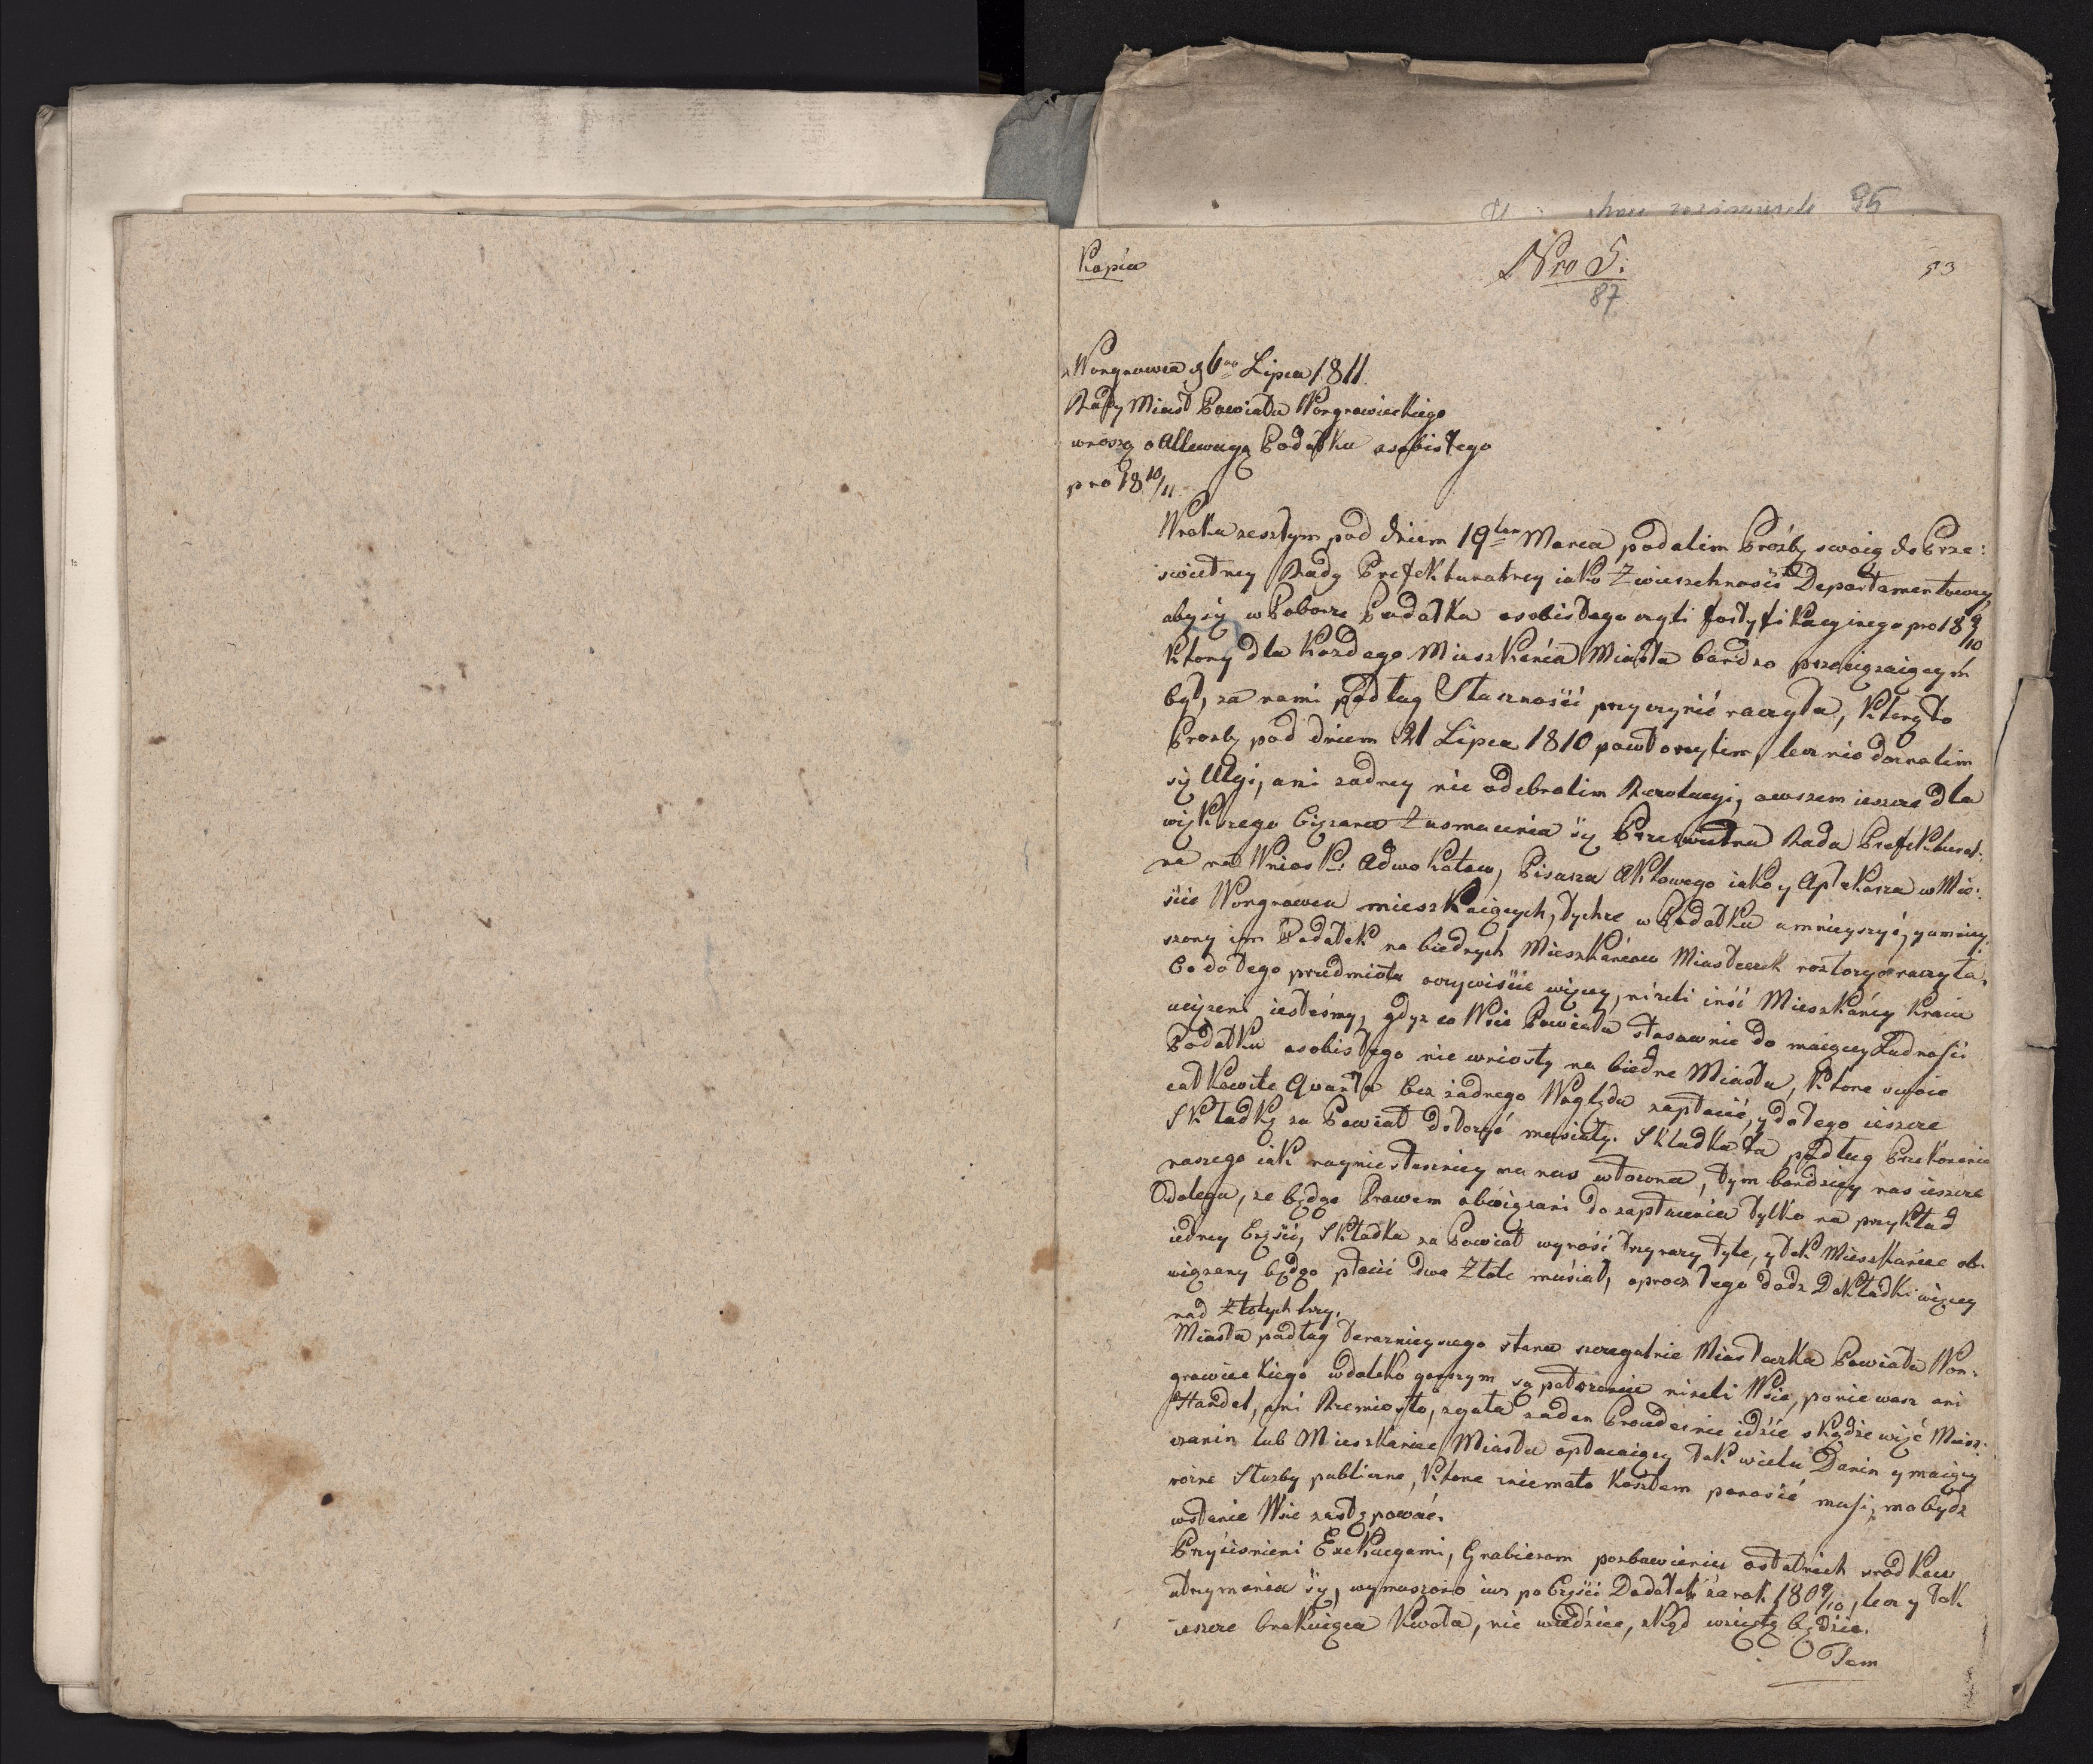 95
Kopia
Nro 5.
87
53
Wongrowca d 6go Lipca 1811.
Rady Miast Powiatu Wongrowieckiego
wnoszą o Allewagą Podatku osobistego
pro 18 10/11
W roku zeszłym pod dniem 19ten Marca podalim Proźbę swoią do Prze:
swietney Rady Prefekturalney iako Zwierzchnosci Departamentowey,
aby się w Poborze Podatku osobistego czyli fortyfikacyinego pro 18 9/10
ktory dla każdego Mieszkańca Miasta bardzo przeciązaiącym
był, za nami podług Słusznosci przyczynić raczyła, którą to
Prozbę pod dniem 21 Lipca 1810 powtorzylim, lecz nie doznalim
się Ulgi, ani zadney nie odebralim Rezolucyi, owszem ieszcze dla
większego Ciężaru Zasmucenia się Przeswietna Rada Prefektural:
na na Wnioski Adwokatow, Pisarza Aktowego iako y Aptekarza w Mie:
scie Wongrowcu mieszkaiących, tychze w Podatku umnieyszyć, y umniey:
szony im Podatek na biednych Mieszkańcow Miasteczek rozłożyć raczyła.
Co do tego przedmiotu oczywiscie więcey, niżeli inśi Mieszkańcy kraiu
uciążeni iestesmy, gdyz co Wsie Powiatu stosownie do maiącey Ludnosci
Podatku osobistego nie wniosły na biedne Miasta, ktore swoie
całkowite Quanta bez żadnego Względu zapłacić, y do tego ieszcze
Składkę za Powiat dołożyć musiały. Składka ta podług Przekonania
naszego iak nayniesłuszniey na nas włożona, tym bardziey nas ieszcze
dolega, ze będąc Prawem obowiązani do zapłacenia tylko na przykład
iedney Częsci, Składka za Powiat wynosi trzy razy tyle, y tak Mieszkaniec ob:
wiązany będąc płacić dwa Złote musiał, oprocz tego dadz Dokładki więcey
nad Złotych trzy.
Miasta podług teraznieyszego stanu szczegulnie Miasteczka Powiatu Won:
growieckiego w daleko gorszym są położeniu niżeli Wsie, poniewasz ani
Handel, ani Rzemiosło, zgoła zaden Proceder nie idzie skądze więc Miesz:
czanin lub Mieszkaniec Miasta opłacaiący tak wielu Danin y maiący
rożne Słuzby publiczne, ktore z niemało kosztem ponosić musi, ma bydz
w stanie Wsie zastępować.
Przycisnieni Exekucyami, Grabiezom pozbawieniu ostatnich srodkow
utrzymania się, wymuszono iuz po Częsci Dodatek za rok 1809/10, lecz y tak
ieszcze brakuiąca kwota, nie wiedziec, zkąd wziętą będzie.
Tem